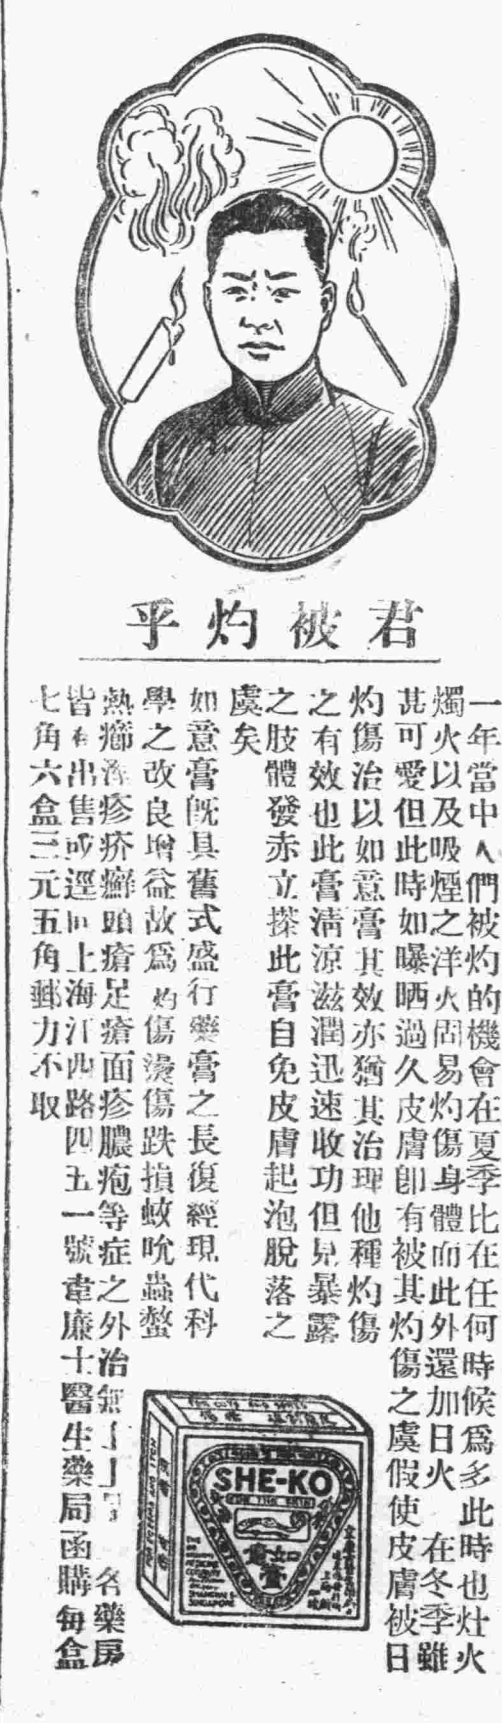 君被灼乎
一年當中人們被灼的機會在夏季比在任何時候爲多此時也灶火
燭火以及吸煙之洋火固易灼傷身體而此外還加日火 在冬季雖
甚可愛但此時如曝晒過久皮膚卽有被其灼傷之虞假使皮膚被日
灼傷治以如意膏其效亦猶其治理他種灼傷
之有效也此膏淸涼滋潤迅速收功但見暴露
之肢體發赤立搽此膏自免皮膚起泡脫落之
虞矣
如意膏旣具舊式盛行藥膏之長復經現代科
學之改良增益故爲灼傷燙傷跌損蚊吮蟲螫
熱癤 疹疥癬頭瘡足瘡面疹膿疱等症之外治 名藥房
皆有出售或逕向上海江西路四五一號韋廉士醫生藥局函購每盒
七角六盒三元五角郵力不取
SHE-KO
如意膏
SHANGHAI &
SINGAPORE